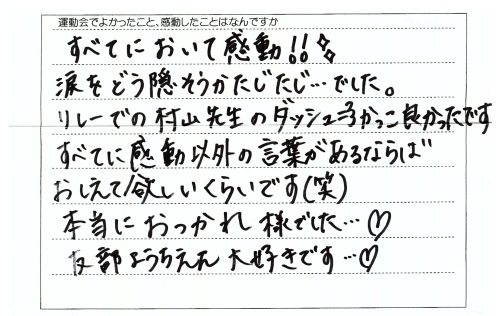 運動会でよかったこと、感動したことはなんですか
すべてにおいて感動!!
涙をどう隠そうかたじたじ…でした。
リレーでの村山先生のダッシュ かっこ良かったです
すべてに感動以外の言葉があるならば
おしえて欲しいくらいです(笑)
本当におつかれ様でした…♡
友部ようちえん大好きです…♡